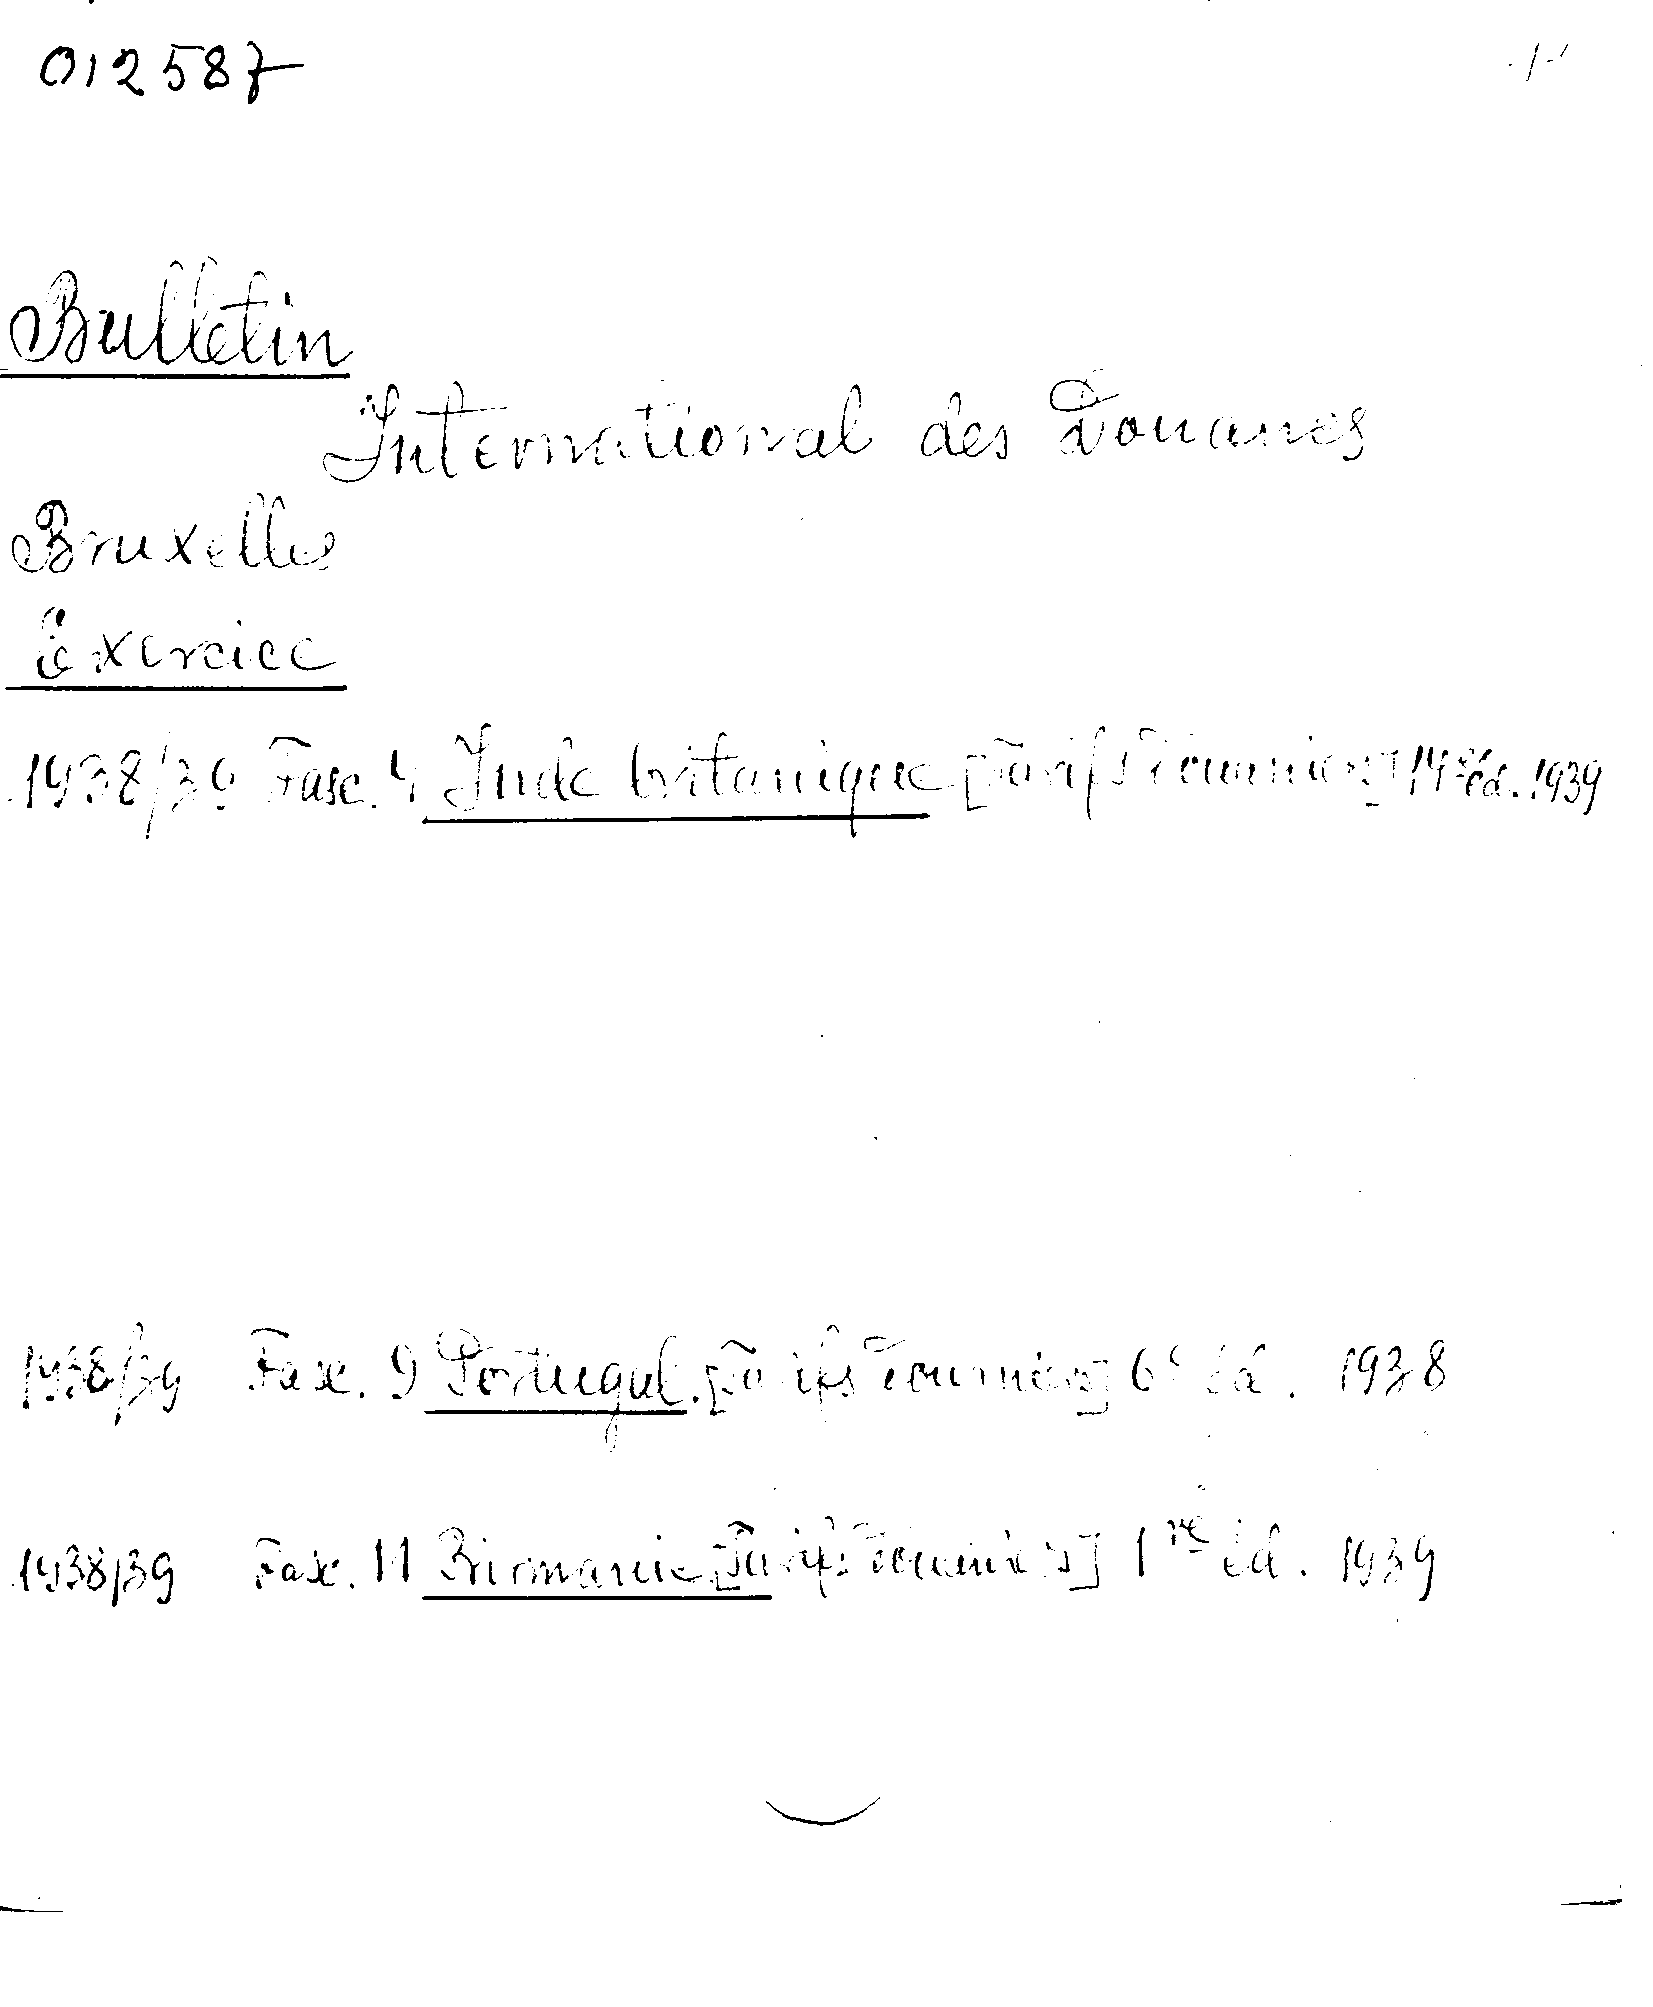 012587
Bulletin
International des Douanes
Bruxelles
Exercice
1938/39 Fasc. 4 Inde britanique [Tarifs Douaniers] 14e éd. 1939
1938/39 Fasc. 9 Portugal. [Tarifs Douaniers] 6e éd. 1938
1938/39 Fasc. 11 Birmanie [Tarifs Douaniers] 1re éd. 1939